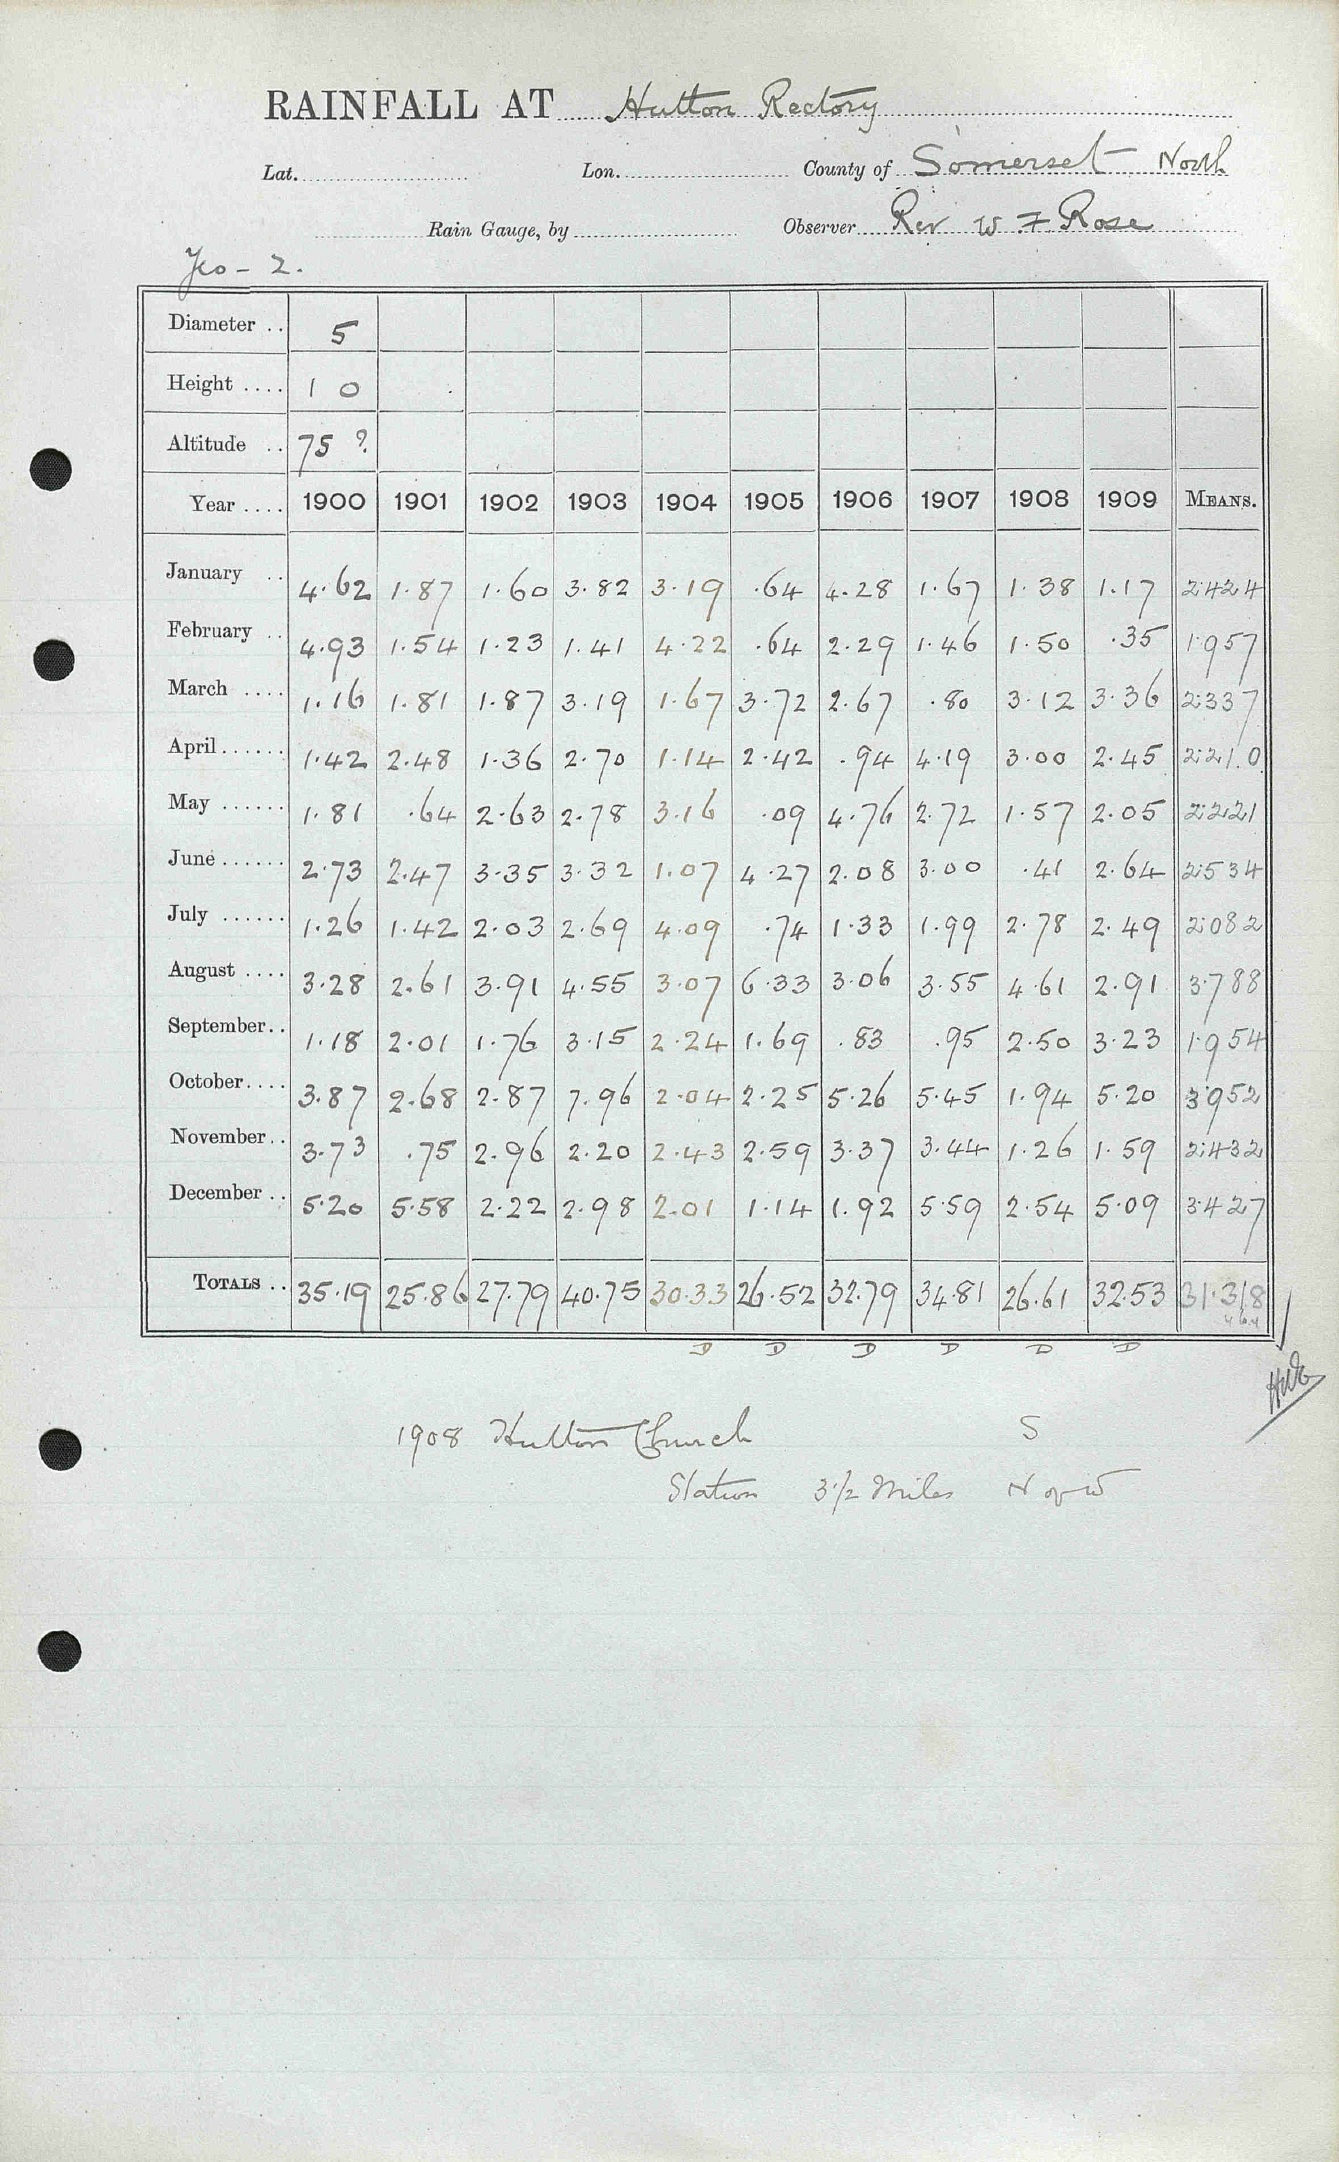 RAINFALL AT Hutton Rectory
Lat. Lon. County of Somerset North
Rain Gauge, by Observer Rev W F Rose
Yeo - 2.
Diameter .. 5
Height .... 1 0
Altitude .. 75 ?
Year .... 1900 1901 1902 1903 1904 1905 1906 1907 1908 1909 MEANS.
January .. 4.62 1.87 1.60 3.82 3.19 .64 4.28 1.67 1.38 1.17 2.424
February .. 4.93 1.54 1.23 1.41 4.22 .64 2.29 1.46 1.50 .35 1.957
March .... 1.16 1.81 1.87 3.19 1.67 3.72 2.67 .80 3.12 3.36 2.337
April...... 1.42 2.48 1.36 2.70 1.14 2.42 .94 4.19 3.00 2.45 2.210
May ...... 1.81 .64 2.63 2.78 3.16 .09 4.76 2.72 1.57 2.05 2.221
June...... 2.73 2.47 3.35 3.32 1.07 4.27 2.08 3.00 .41 2.64 2.534
July ...... 1.26 1.42 2.03 2.69 4.09 .74 1.33 1.99 2.78 2.49 2.082
August .... 3.28 2.61 3.91 4.55 3.07 6.33 3.06 3.55 4.61 2.91 3.788
September.. 1.18 2.01 1.76 3.15 2.24 1.69 .83 .95 2.50 3.23 1.954
October.... 3.87 2.68 2.87 7.96 2.04 2.25 5.26 5.45 1.94 5.20 3.952
November.. 3.73 .75 2.96 2.20 2.43 2.59 3.37 3.44 1.26 1.59 2.432
December .. 5.20 5.58 2.22 2.98 2.01 1.14 1.92 5.59 2.54 5.09 3.427
TOTALS .. 35.19 25.86 27.79 40.75 30.33 26.52 32.79 34.81 26.61 32.53 31.318
D D D D D D
1908 Hutton Church S
Station 3 1/2 Miles N of W